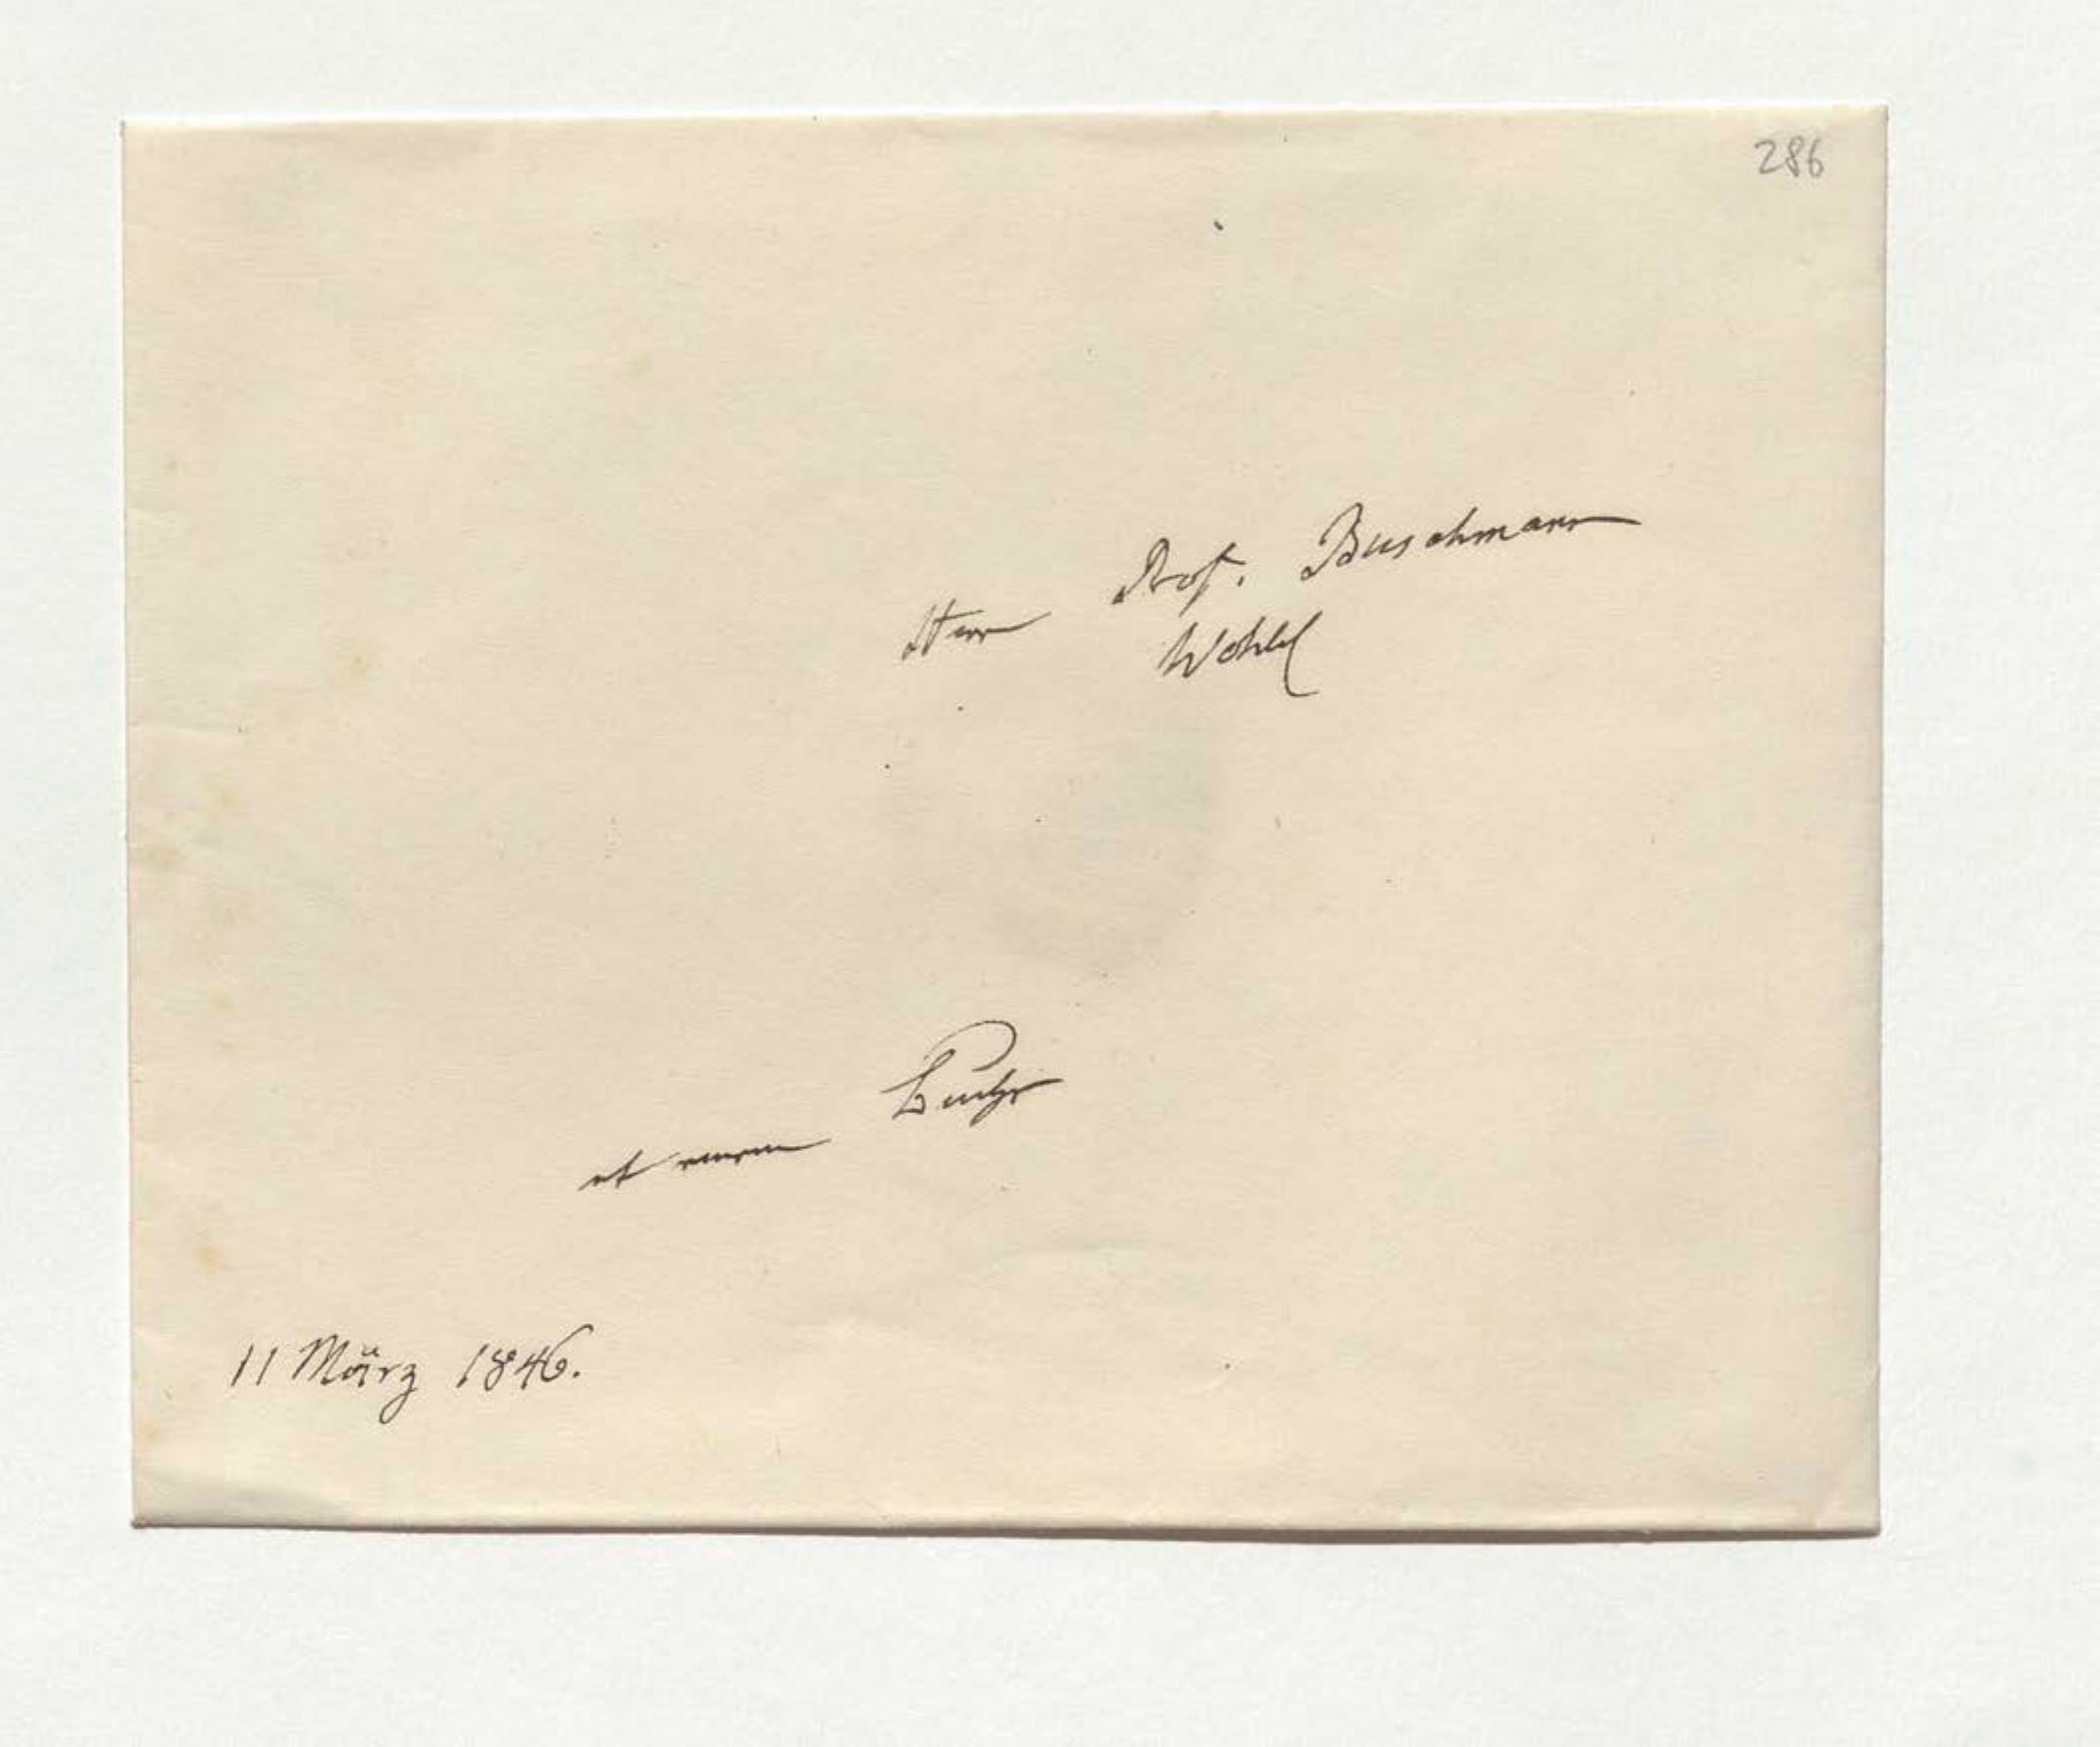 286
Herr Prof. Buschmann
Wohl
mit einem Buche
11 März 1846.